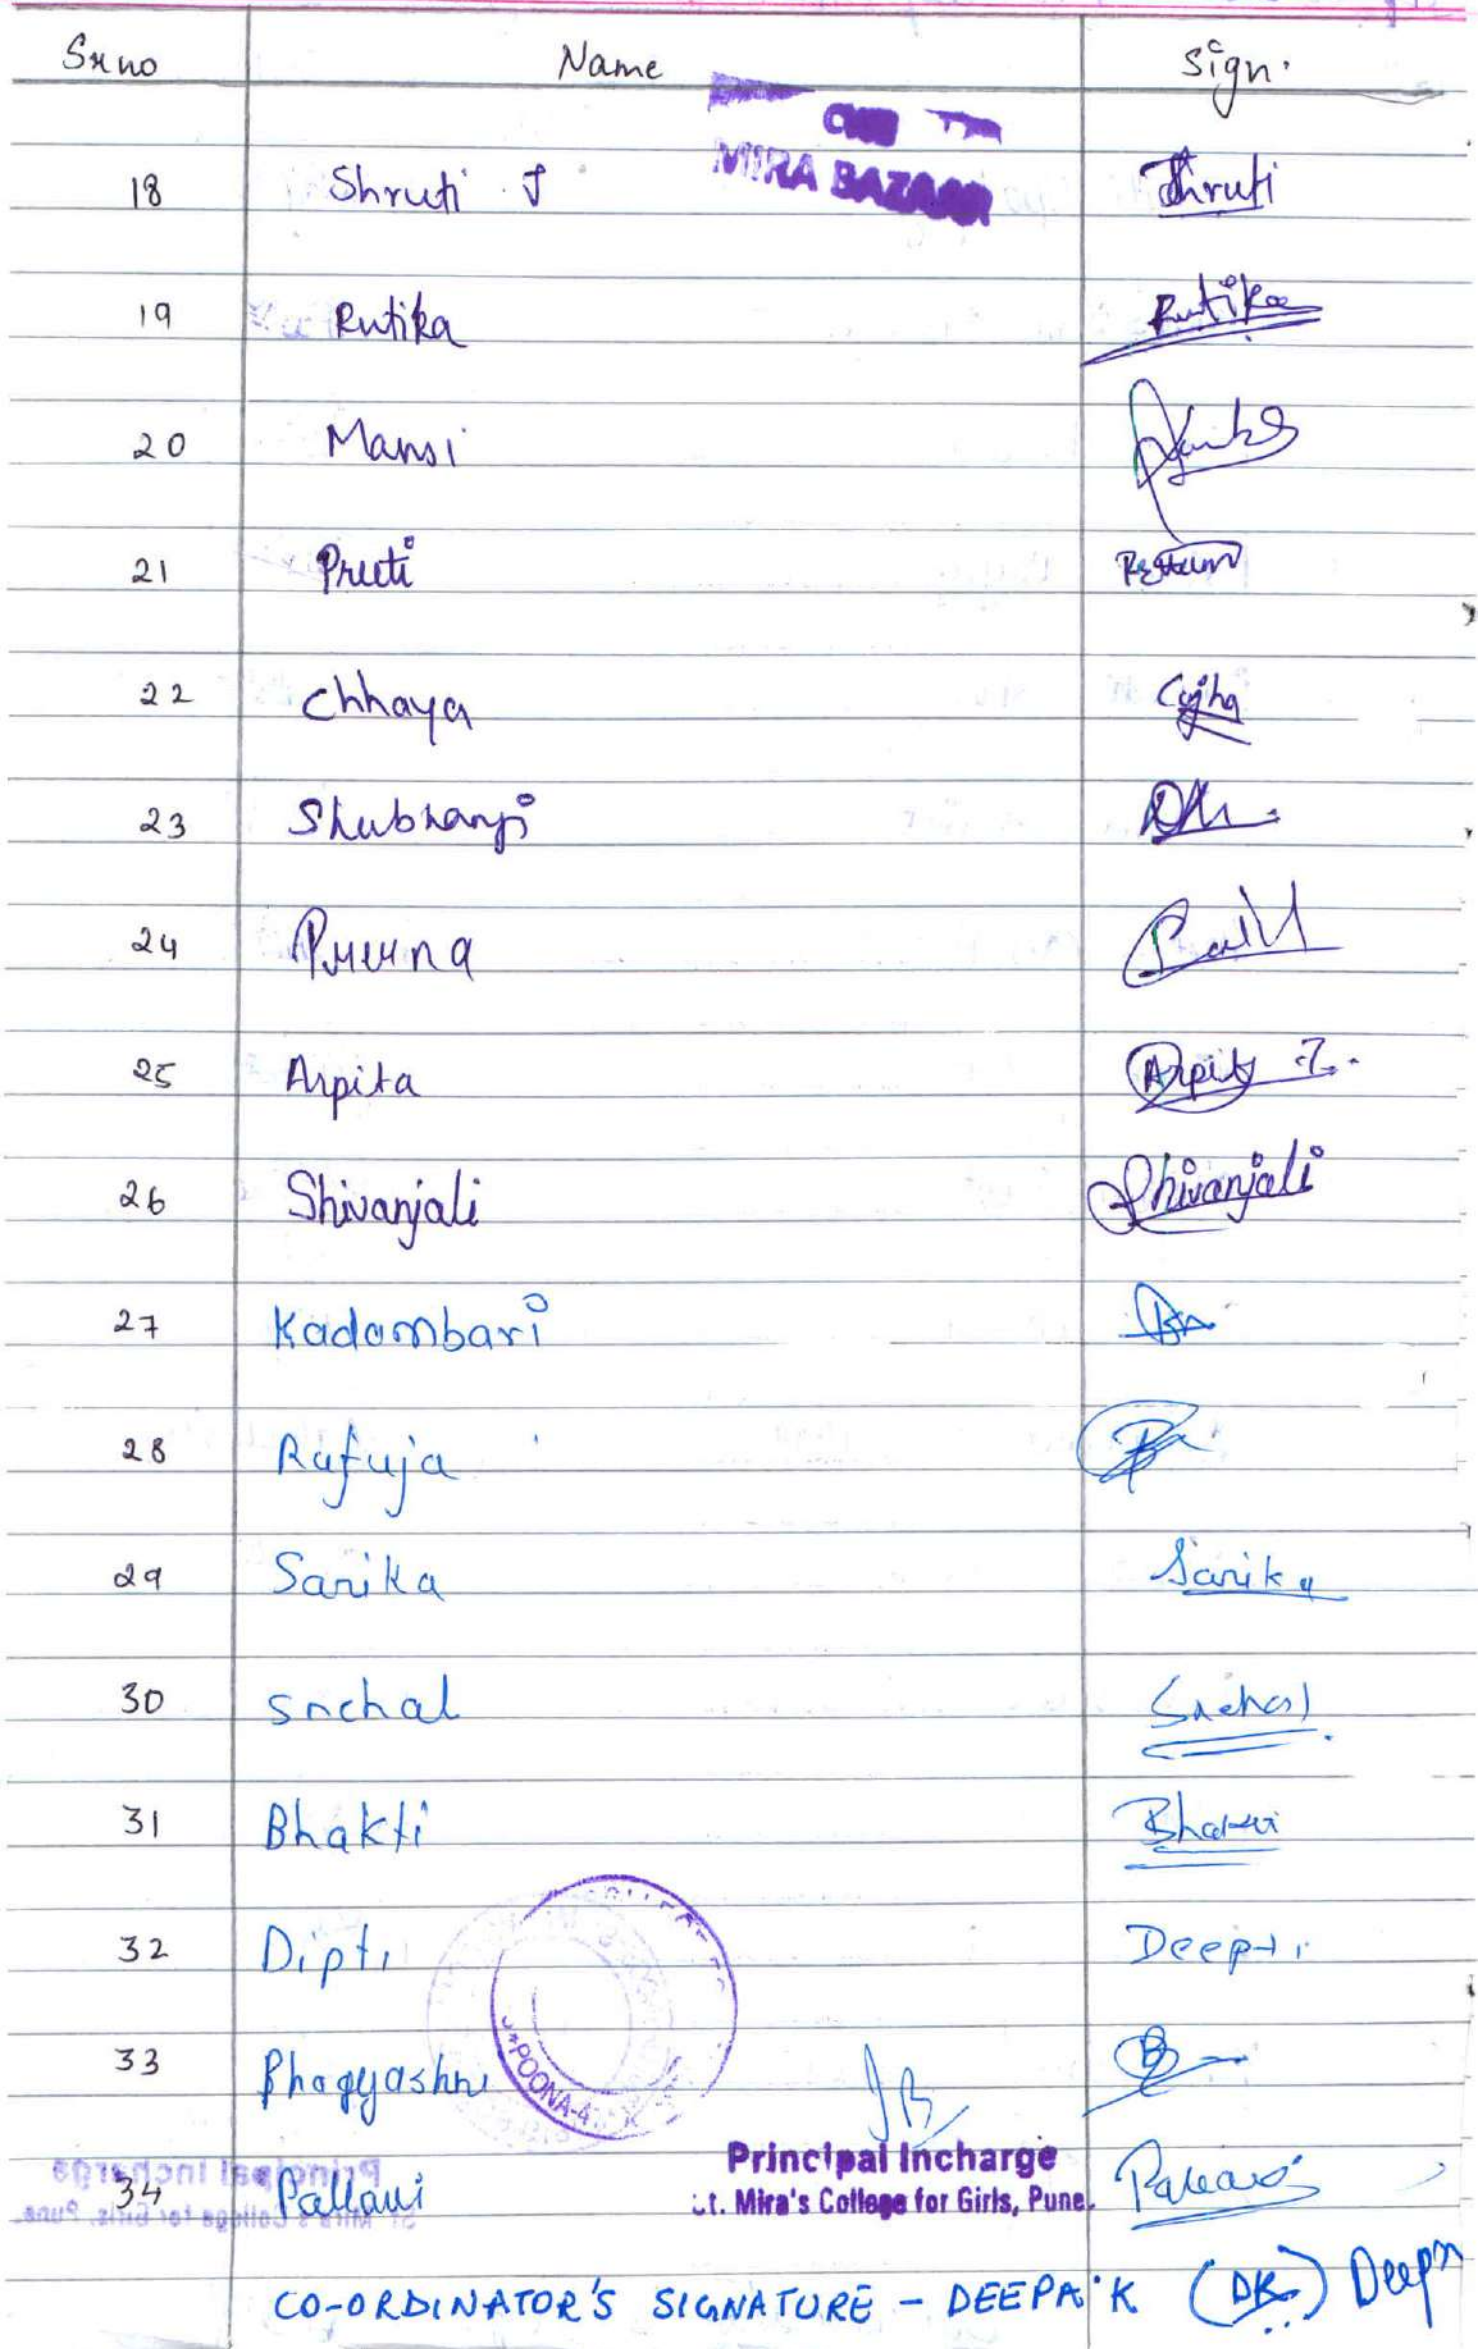 Sr no Name Sign.
MIRA BAZAAR
18 Shruti J Shruti
19 Rutika Rutika
20 Mansi
21 Preeti
22 Chhaya
23 Shubhangi
24 Prerna
25 Arpita Arpita
26 Shivanjali Shivanjali
27 Kadambari
28 Rutuja
29 Sarika Sarika
30 Snehal Snehal
31 Bhakti Bhakti
32 Dipti Deepti
33 Bhagyashri
POONA-
JB
Principal Incharge
34 Pallavi Pallavi
St. Mira's College for Girls, Pune.
CO-ORDINATOR'S SIGNATURE - DEEPAK (DK)